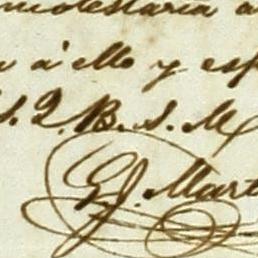 molestaria a
a á ello y esp
S. Q. B. S. M
G J. Mart